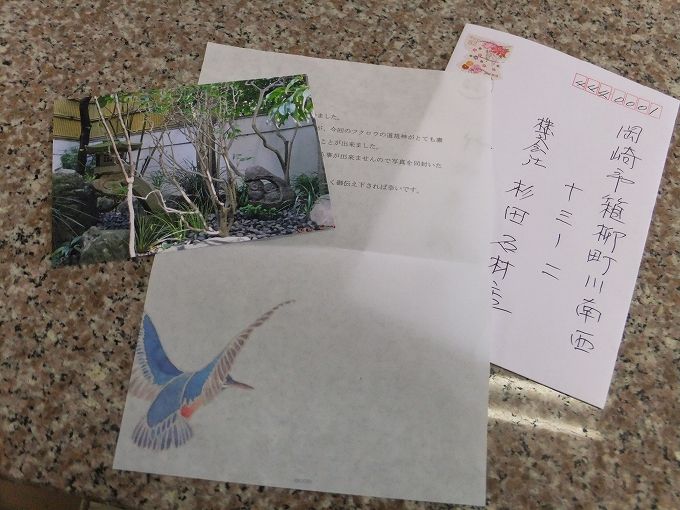 いました。
は、今回のフクロウの道祖神がとても素
ことが出来ました。
事が出来ませんので写真を同封いた
く御伝え下されば幸いです。
444 0001
岡崎市箱柳町川南西
十三ー二
株式会社 杉田石材店